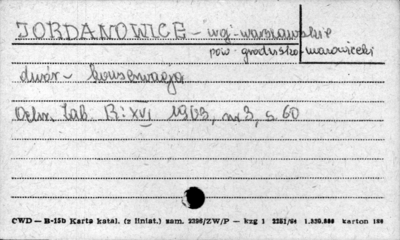 JORDANOWICE - wgj - warszawskie
pow. grodzisko-mazowiecki
dwór - konserwacja
Ochr. Zab. R: XVI 1963, nr 3, s. 60
CWD — B-15b Karta katal. (z liniat.) zam. 2396/ZW/P — kzg 1 2251/64 1.320.000 karton 180